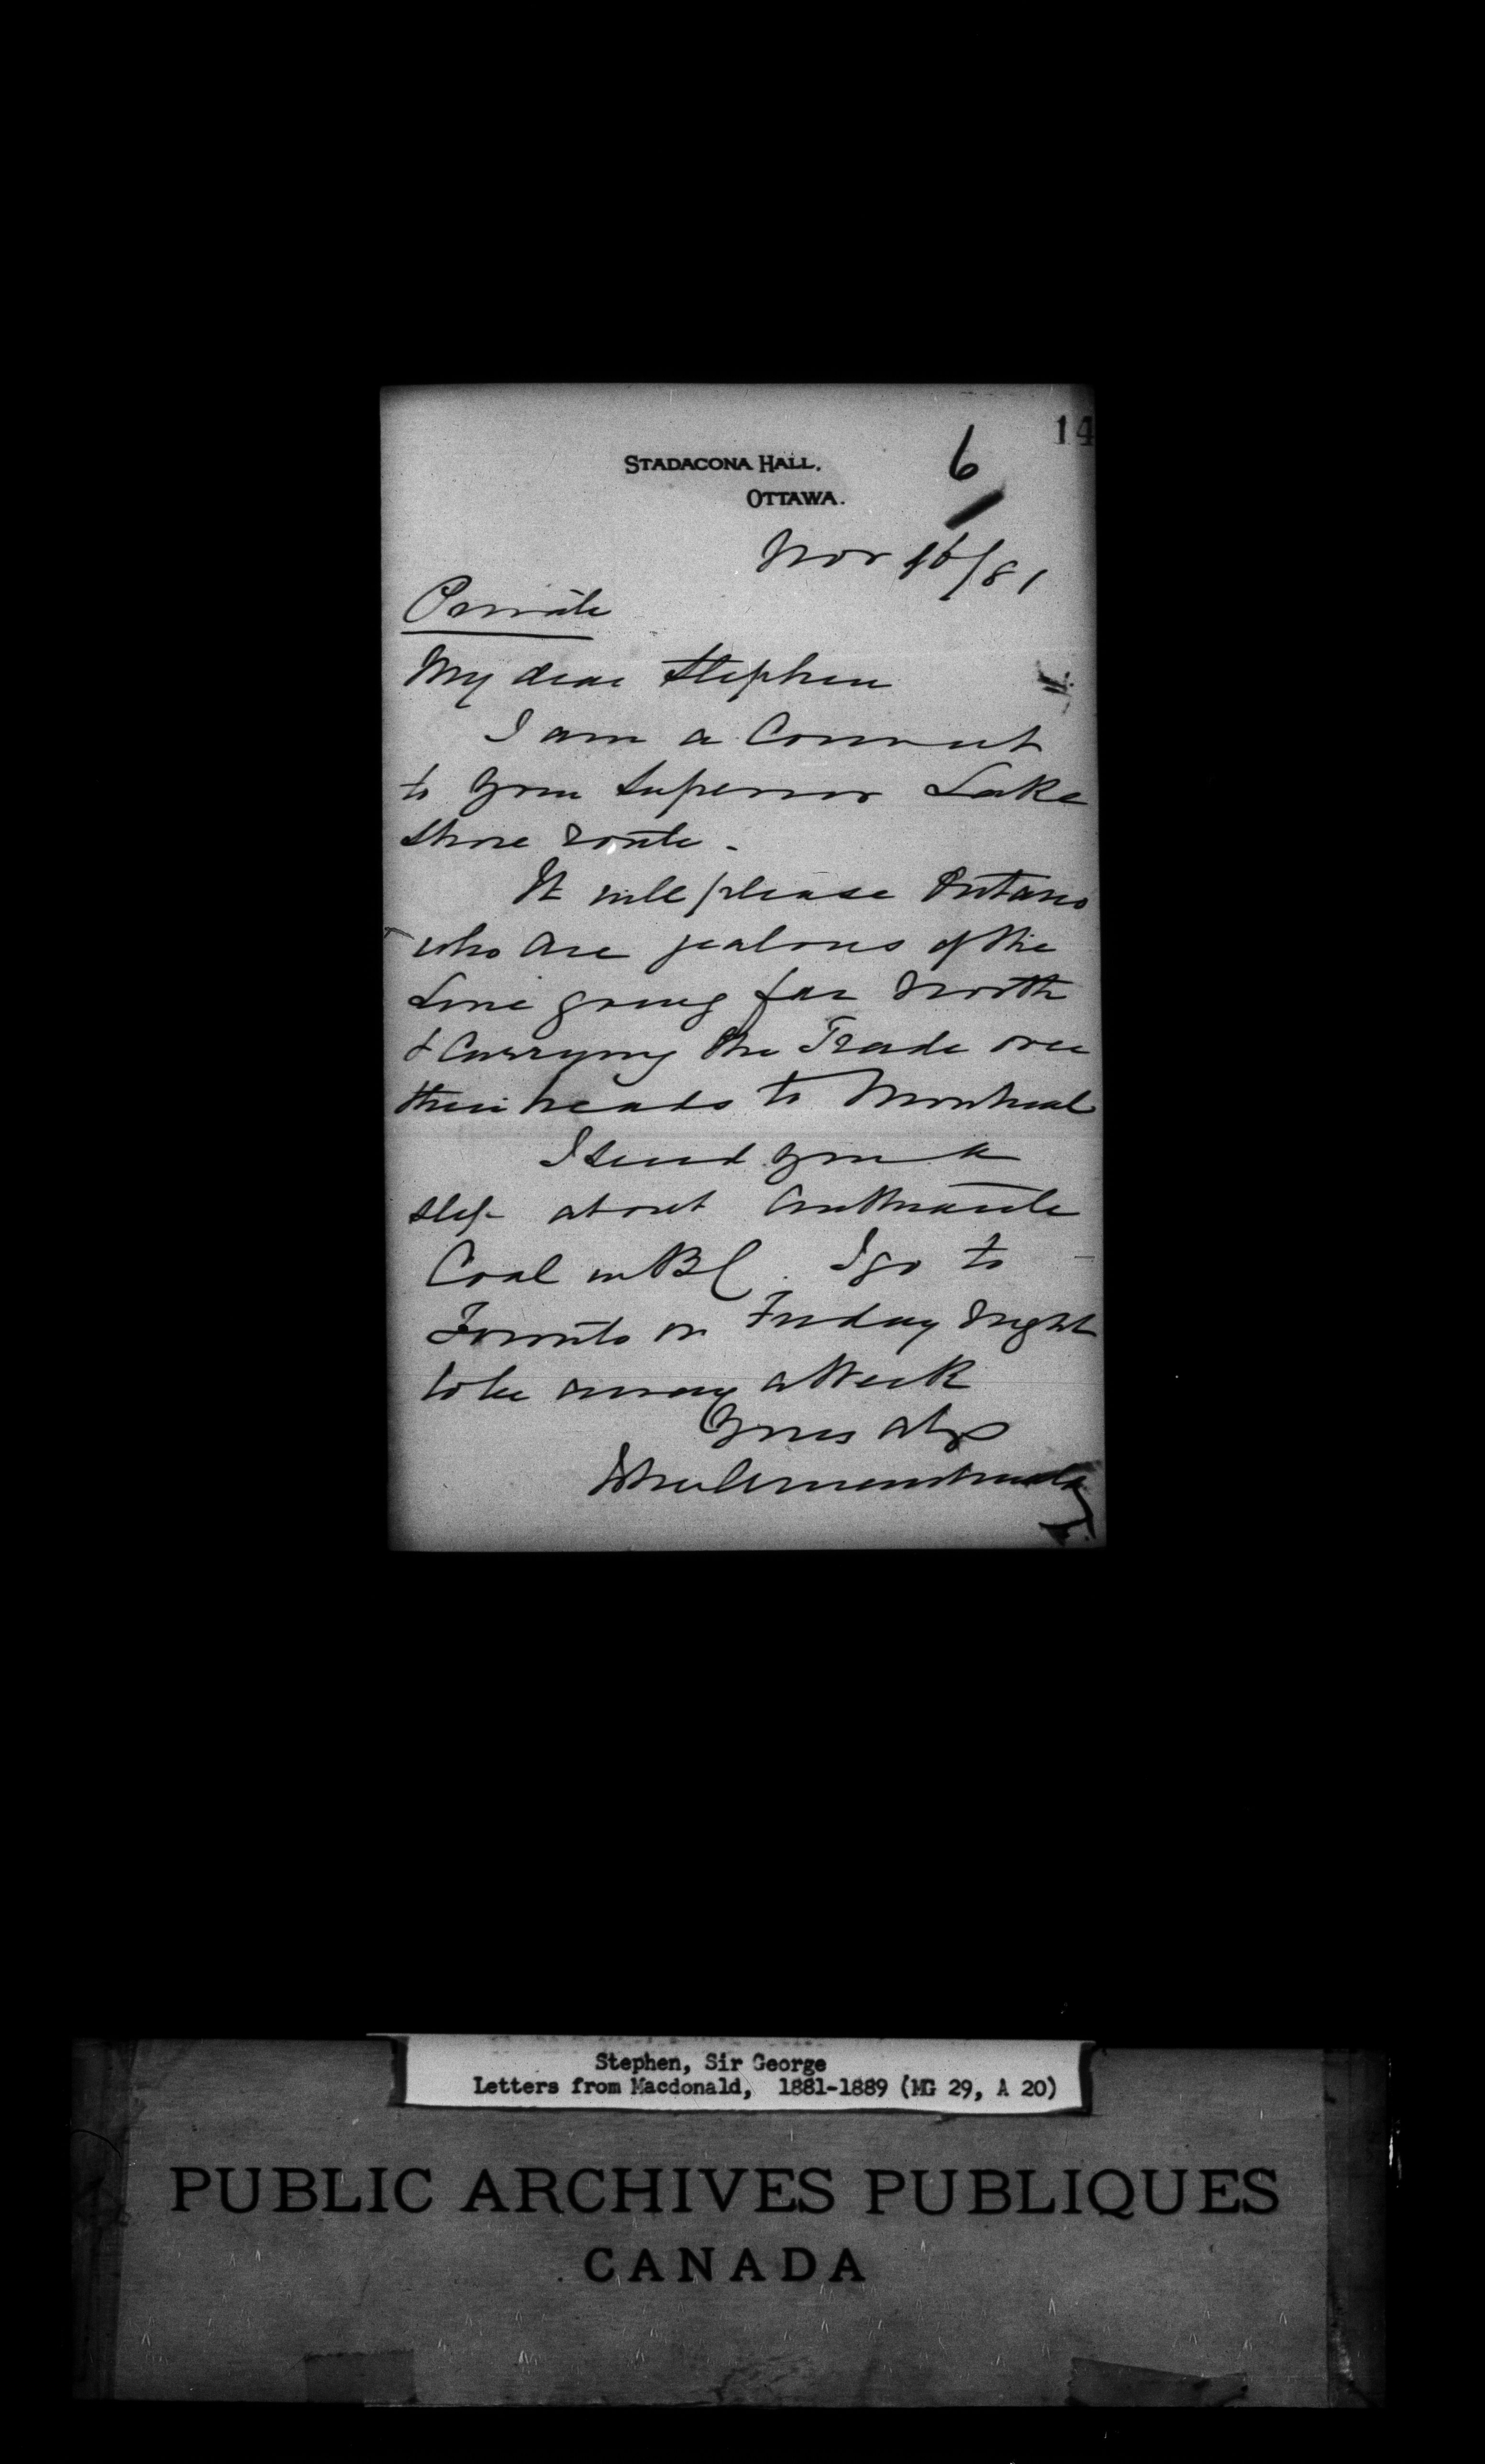 14
6
STADACONA HALL,
OTTAWA.
Nov 16/81
Private
My dear Stephen
I am a Convert
to your Superior Lake
Shore route -
It will please Ontario
who are jealous of the
Line going far North
& Carrying the Trade over
their heads to Montreal
I send you a
slip about Anthracite
Coal in BC. I go to
Toronto on Friday night
to be away a Week
Yours alys
John A Macdonald
Stephen, Sir George
Letters from Macdonald, 1881-1889 (MG 29, A 20)
PUBLIC ARCHIVES PUBLIQUES
CANADA